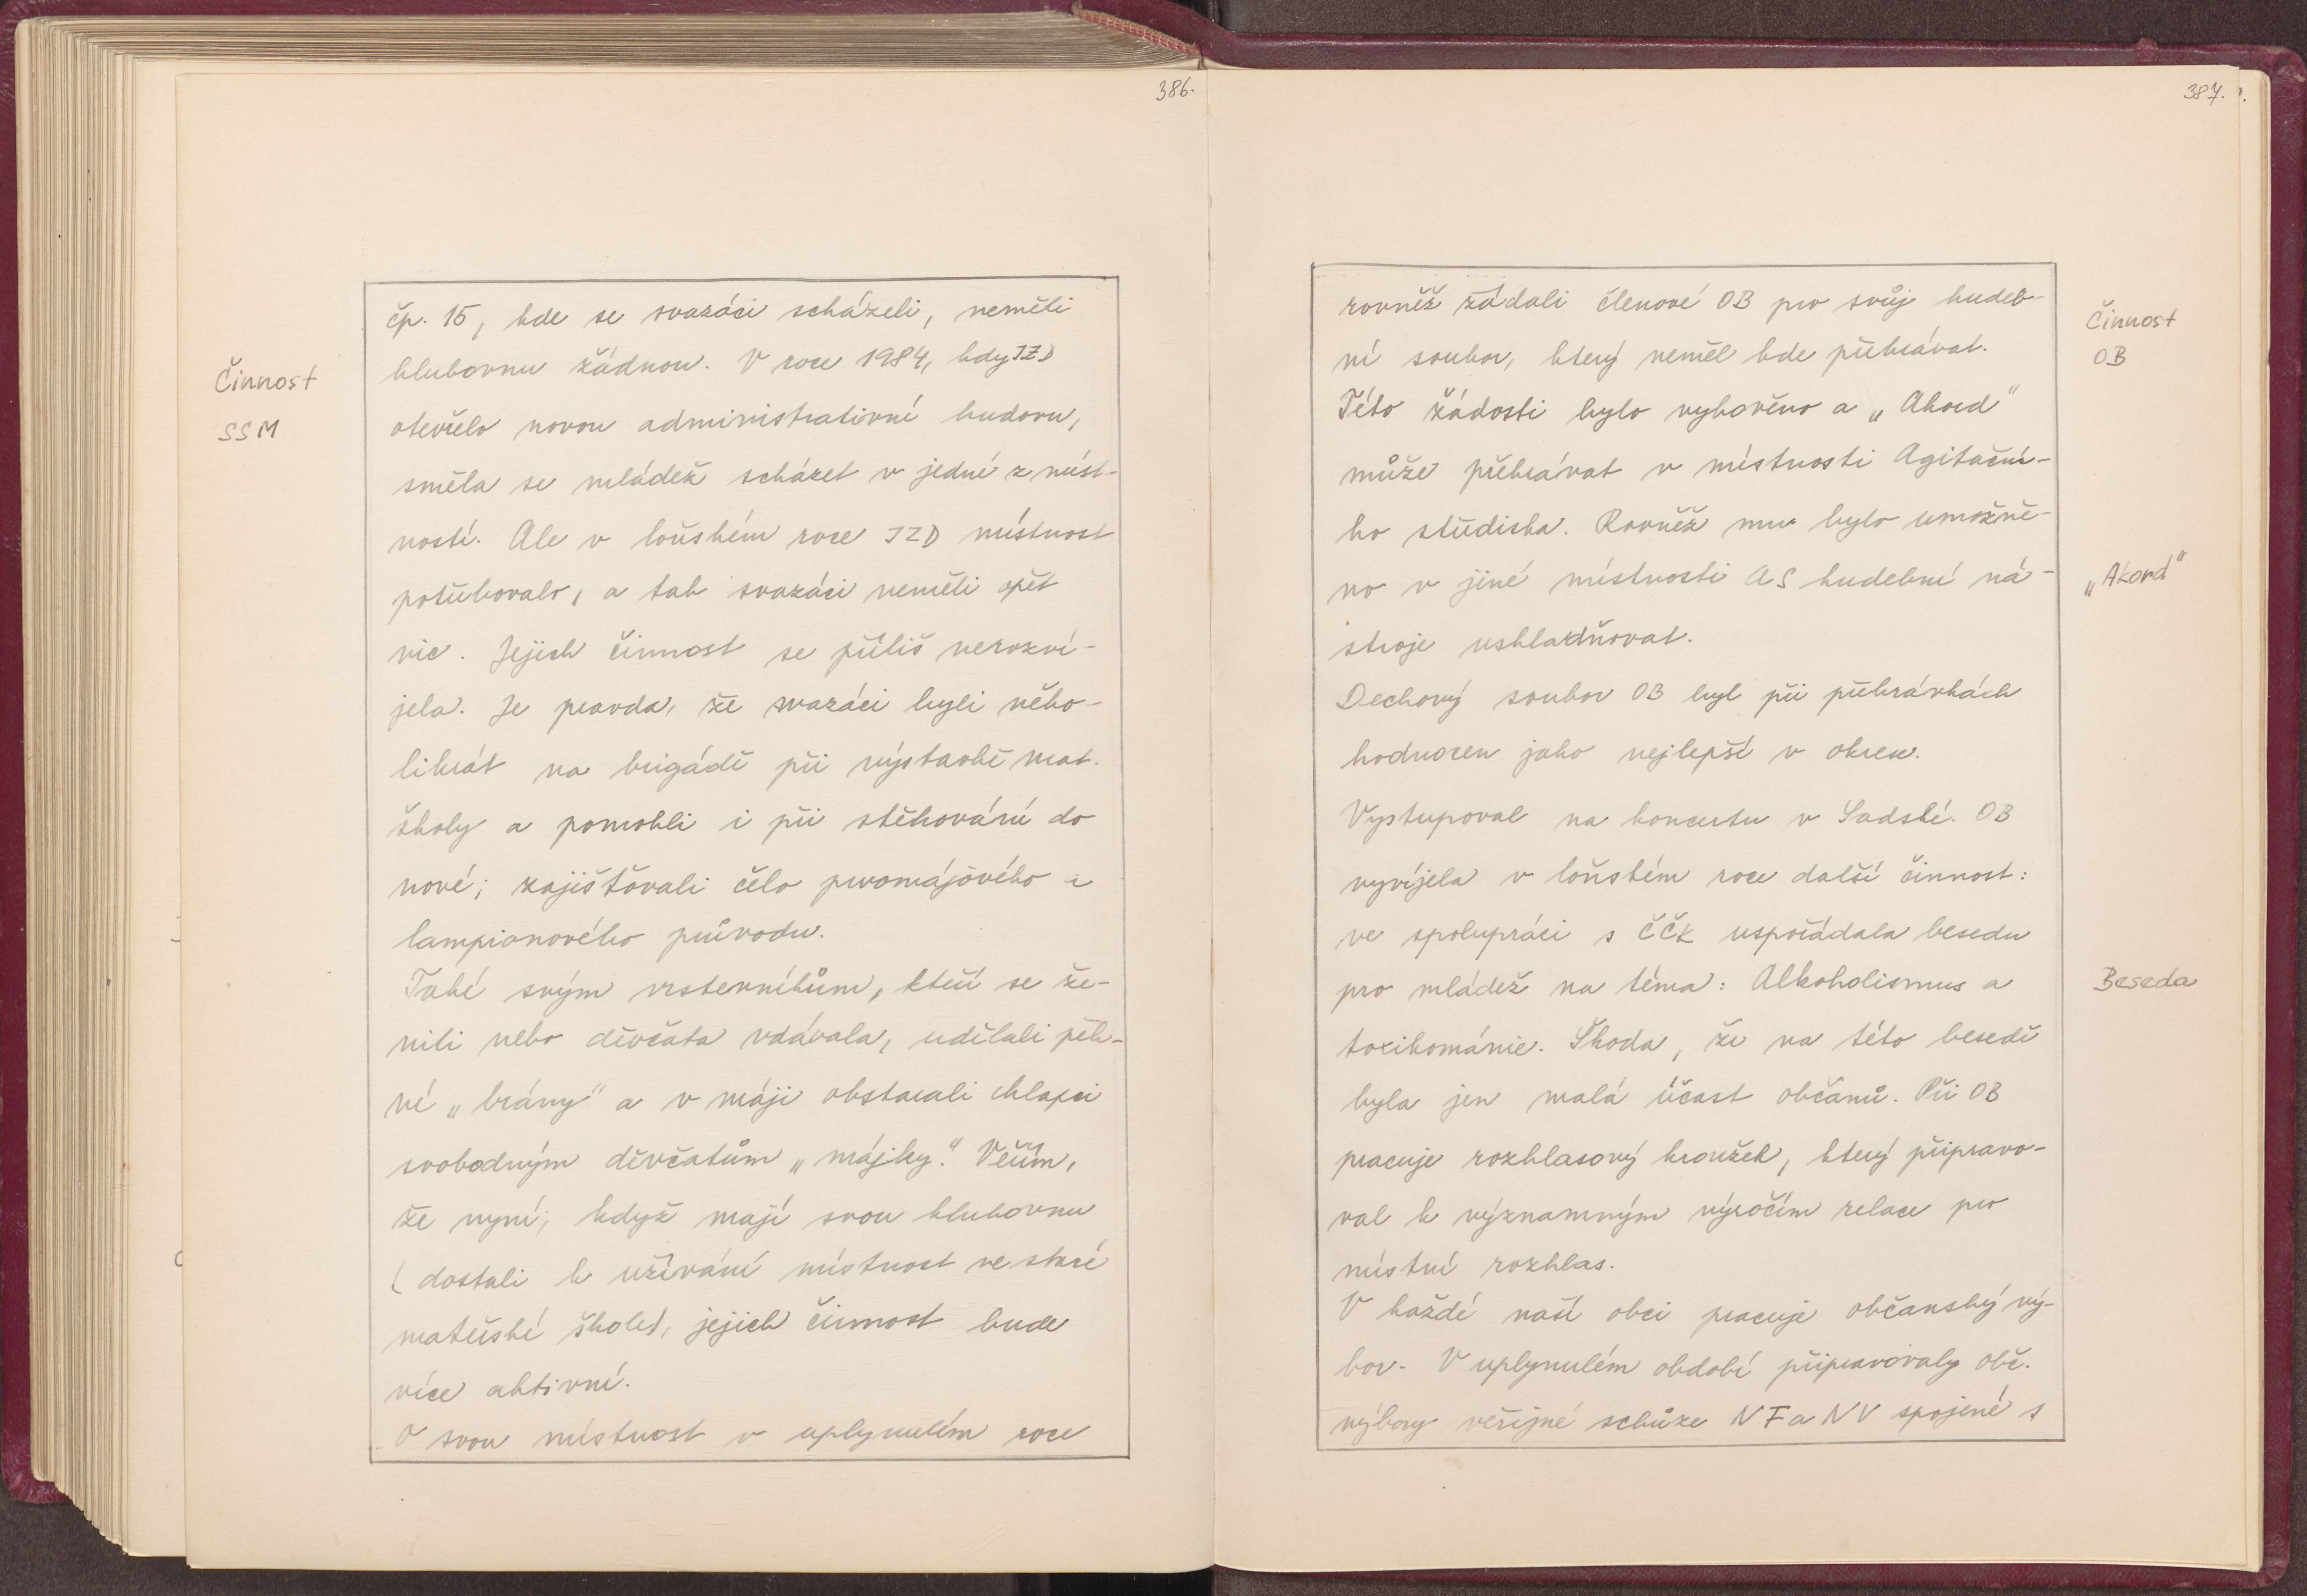 386.
Činnost
SSM
čp. 15, kde se svazáci scházeli, neměli
klubovnu žádnou. V roce 1984, kdy JZD
otevřelo novou administrativní budovu,
směla se mládež scházet v jedné z míst-
ností. Ale v loňském roce JZD místnost
potřebovalo, a tak svazáci neměli opět
nic. Jejich činnost se příliš nerozví-
jela. Je pravda, že svazáci byli něko-
likrát na brigádě při výstavbě mat.
školy a pomohli i při stěhování do
nové; zajišťovali čelo prvomájového i
lampionového průvodu.
Také svým vrstevníkům, kteří se že-
nili nebo děvčata vdávala, udělali pěk-
né „brány" a v máji obstarali chlapci
svobodným děvčatům „májky." Věřím,
že nyní, když mají svou klubovnu
(dostali k užívání místnost ve staré
mateřské škole), jejich činnost bude
více aktivní.
O svou místnost v uplynulém roce
387.
rovněž žádali členové OB pro svůj hudeb-
ní soubor, který neměl kde přehrávat.
Této žádosti bylo vyhověno a „Akord"
může přehrávat v místnosti Agitační-
ho střediska. Rovněž mu bylo umožně-
no v jiné místnosti AS hudební ná-
stroje uskladňovat.
Dechový soubor OB byl při přehrávkách
hodnocen jako nejlepší v okrese.
Vystupoval na koncertu v Sadské. OB
vyvíjela v loňském roce další činnost:
ve spolupráci s ČČK uspořádala besedu
pro mládež na téma: Alkoholismus a
toxikománie. Škoda, že na této besedě
byla jen malá účast občanů. Při OB
pracuje rozhlasový kroužek, který připravo-
val k významným výročím relace pro
místní rozhlas.
V každé naší obci pracuje občanský vý-
bor. V uplynulém období připravovaly obč.
výbory veřejné schůze NF a NV spojené s
Činnost
OB
„Akord"
Beseda